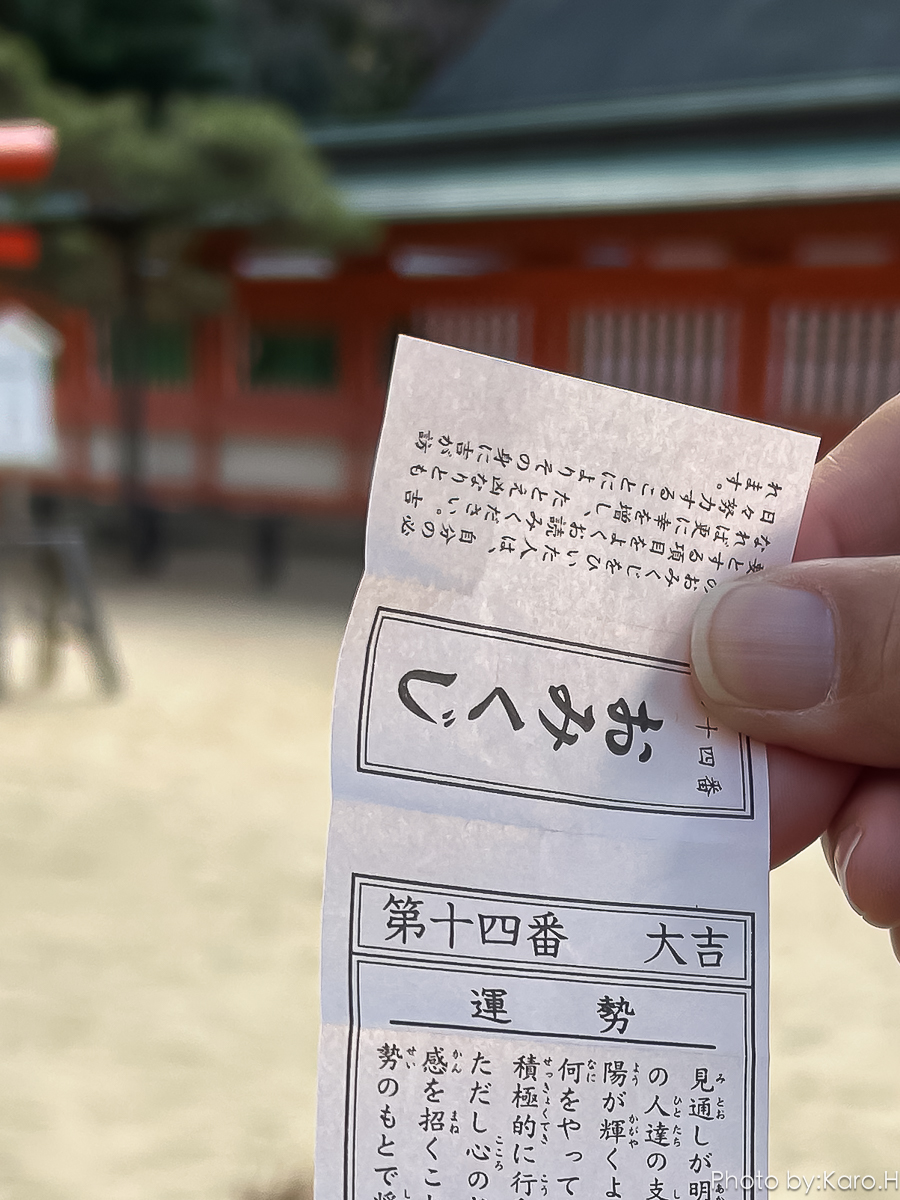 のおみくじをひいた人は、自分の必
要とする項目をよくお読みください。吉
なれば更に幸を増し、たとえ凶なりとも
日々努力することによりその身に吉が訪
れます。
十四番
おみくじ
第十四番 大吉
運勢
見通しが明
の人達の支
陽が輝くよ
何をやって
積極的に行
ただし心の
感を招くこ
勢のもとで
Photo by:Karo.H